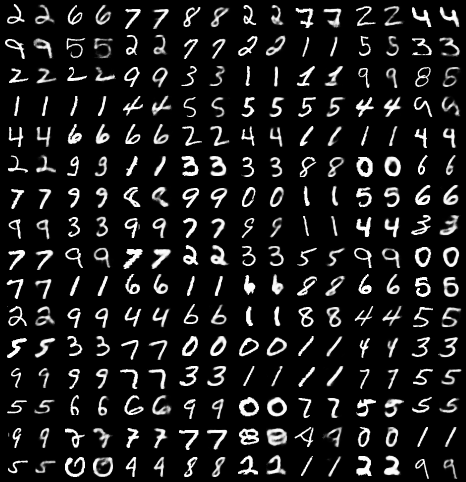 2 2 6 6 7 7 8 8 2 2 7 7 2 2 4 4
9 9 5 5 2 2 7 7 2 2 1 1 5 5 3 3
2 2 2 2 9 9 3 3 1 1 1 1 9 9 8 5
1 1 1 1 4 4 5 5 5 5 5 5 4 4 9 9
4 4 6 6 6 6 2 2 4 4 1 1 1 1 4 4
2 2 9 9 1 1 3 3 3 3 8 8 0 0 6 6
7 7 9 9 8 8 9 9 0 0 1 1 5 5 6 6
9 9 3 3 9 9 7 7 9 9 1 1 4 4 3 3
7 7 9 9 7 7 2 2 3 3 5 5 9 9 0 0
7 7 1 1 6 6 1 1 6 6 8 8 6 6 5 5
2 2 9 9 4 4 6 6 1 1 8 8 4 4 5 5
5 5 3 3 7 7 0 0 0 0 1 1 4 4 3 3
9 9 9 9 7 7 3 3 1 1 1 1 7 7 5 5
5 5 6 6 6 6 9 9 0 0 7 7 5 5 5 5
9 9 7 7 7 7 7 8 8 4 4 0 0 1 1
5 5 0 0 4 4 8 8 2 2 1 1 2 2 9 9